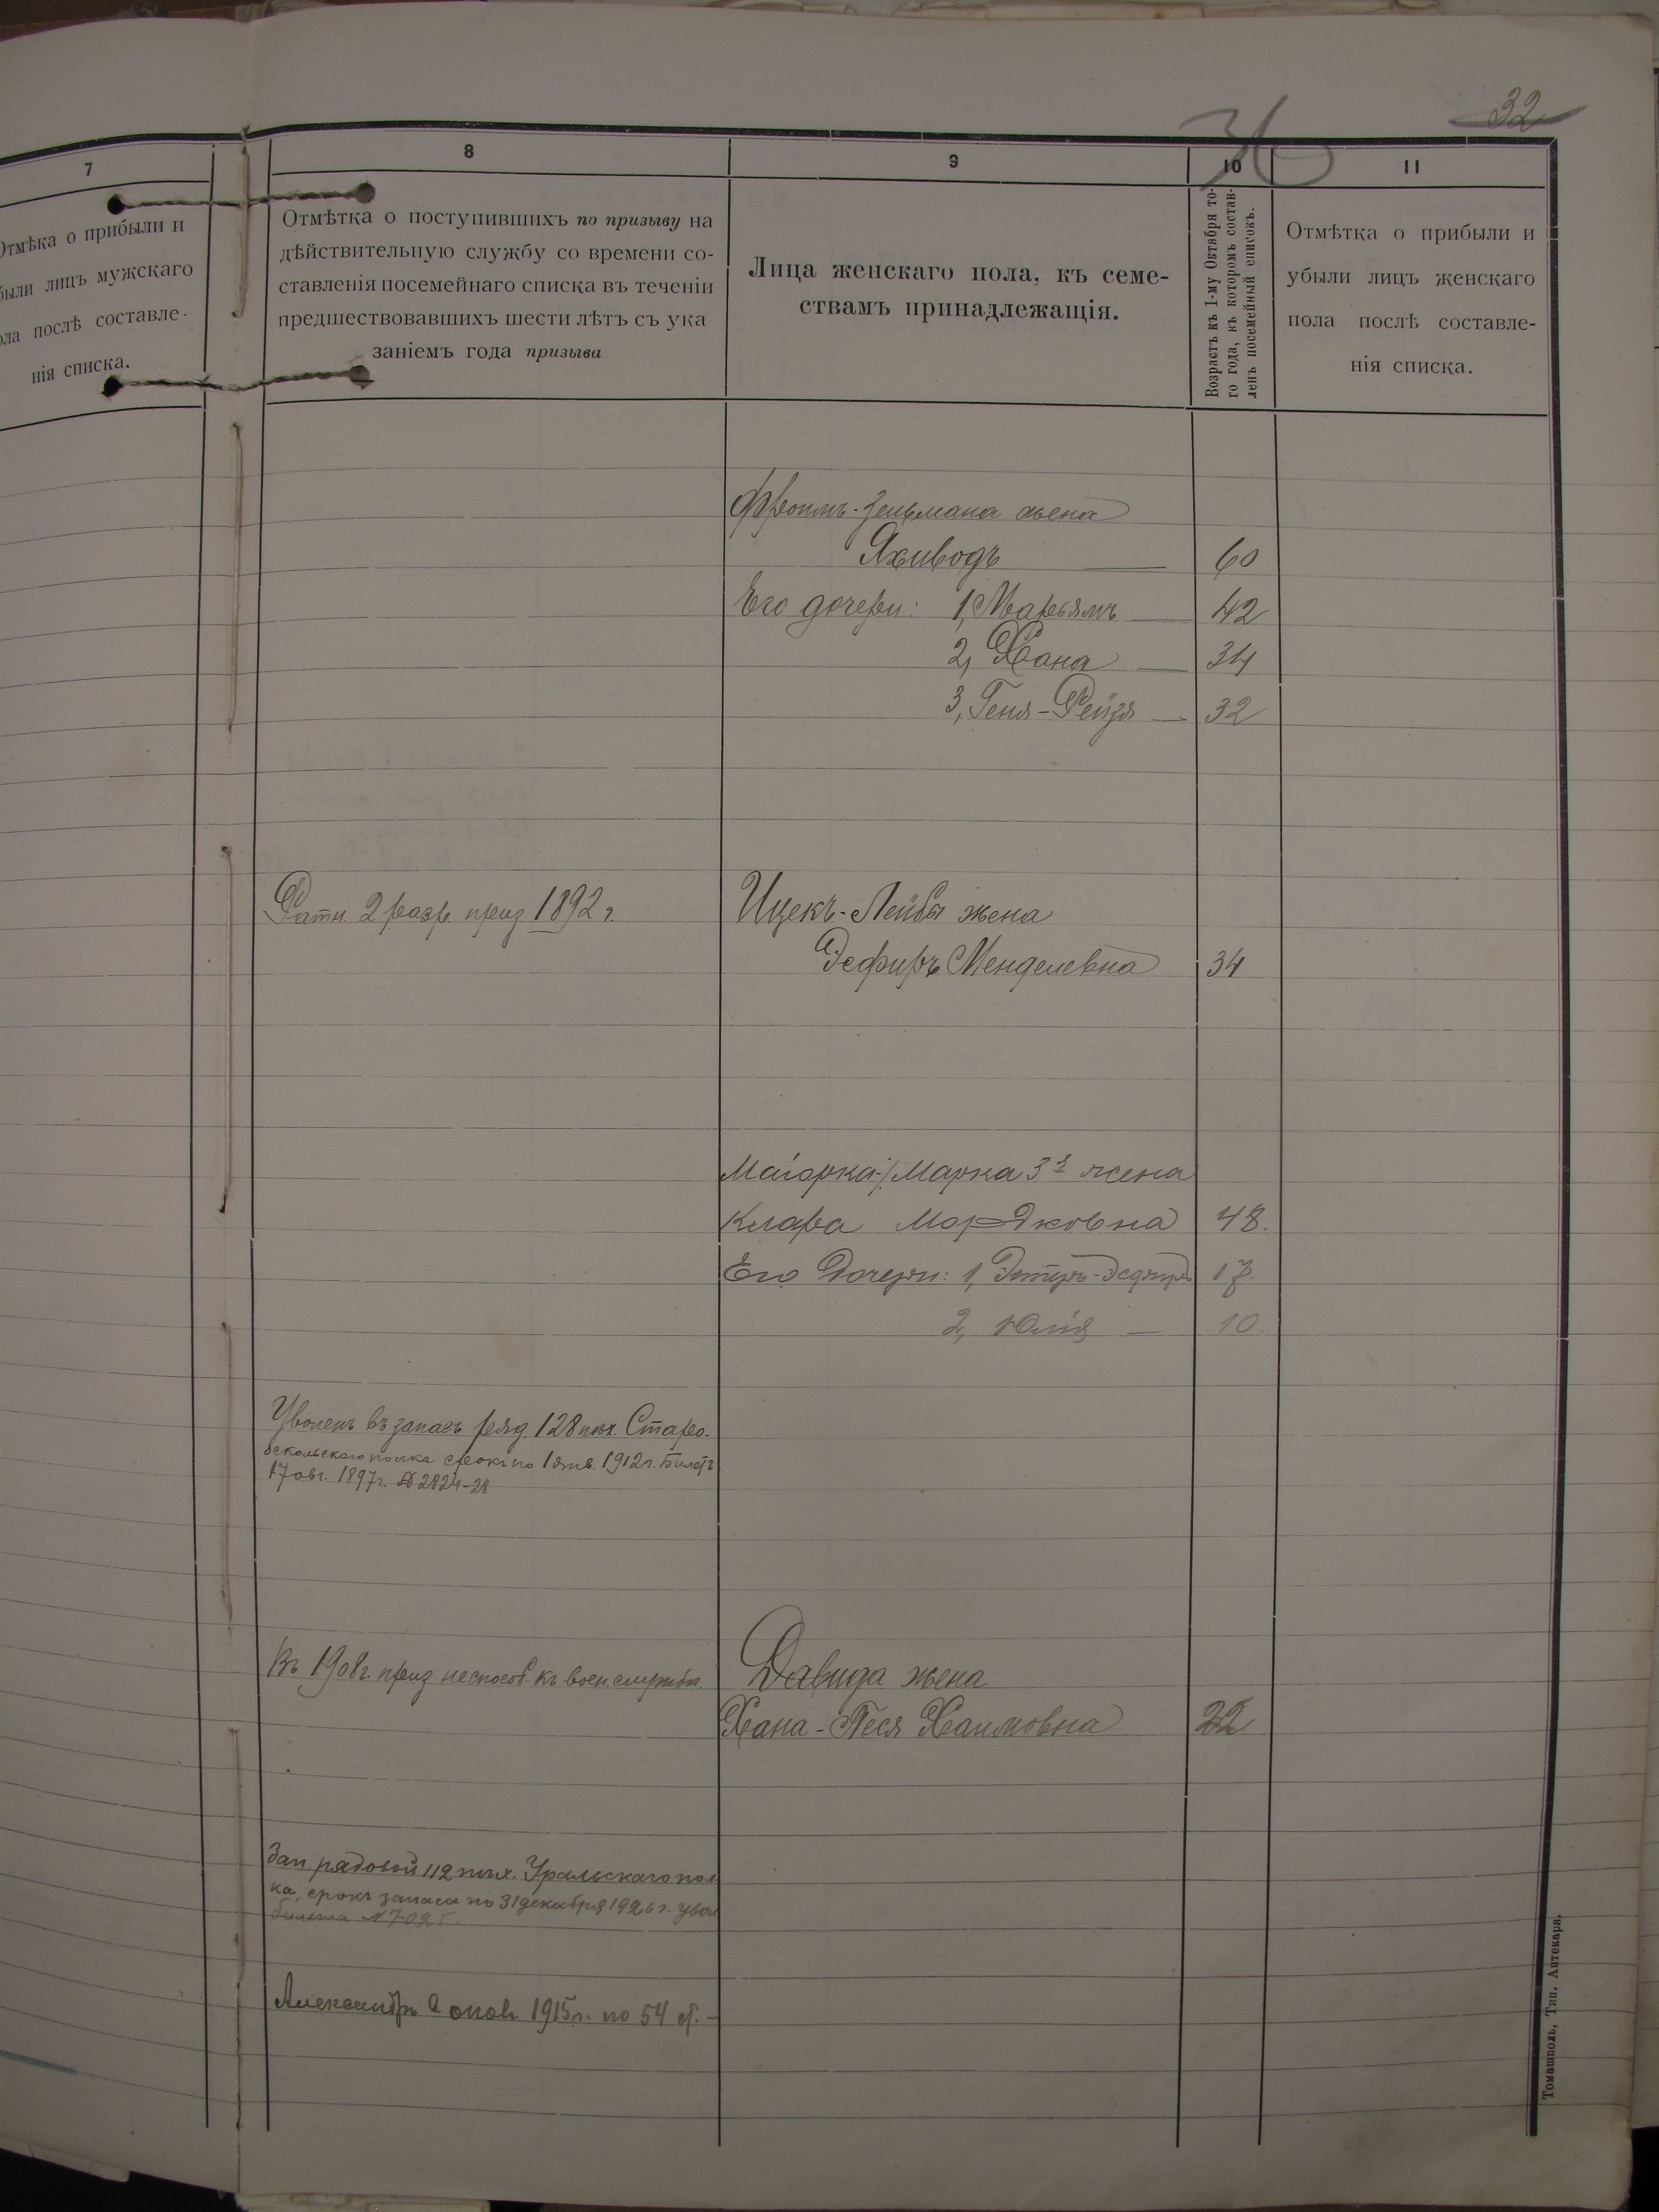 32
36
7
8
9
10
11
Отмѣка о прибыли и
были лицъ мужскаго
ола послѣ составле-
нія списка.
Отмѣтка о поступившихъ по призыву на
дѣйствительную службу со времени со-
ставленія посемейнаго списка въ теченіи
предшествовавшихъ шести лѣтъ съ ука
заніемъ года призыва
Лица женскаго пола, къ семе-
ствамъ принадлежащія.
Возрастъ къ 1-му Октября то-
го года, къ которомъ состав-
ленъ посемейный списокъ.
Отмѣтка о прибыли и
убыли лицъ женскаго
пола послѣ составле-
нія списка.
Фроимъ-Зельмана жена
Яхиводъ 60
Его дочери: 1, Марьямъ 42
2, Хана 34
3, Геня-Рейзя 32
Ратн. 2 разр. приз. 1892 г.
Ицекъ-Лейбы жена
Эсфирь Менделевна 34
Маіорка-/Марка 3я жена
Клара Мордковна 48.
Его дочери: 1, 17.
2, Юлія 10.
Уволенъ въ запасъ ряд. 128 пѣх. Старо-
оскольскаго полка срокъ по 1 янв. 1912 г. Билетъ
17 авг. 1897 г. № 2824-28
Въ 1908 г. приз неспособ. къ воен. службѣ.
Давида жена
Хана-Песя Хаимовна 22
Зап. рядовой 112 пѣх. Уральскаго пол
ка, срокъ запаса по 31 декабря 1926 г. увол
билета №
Александръ 1915 г. по 54 ст.
Томашполь, Тип. Аптекаря.